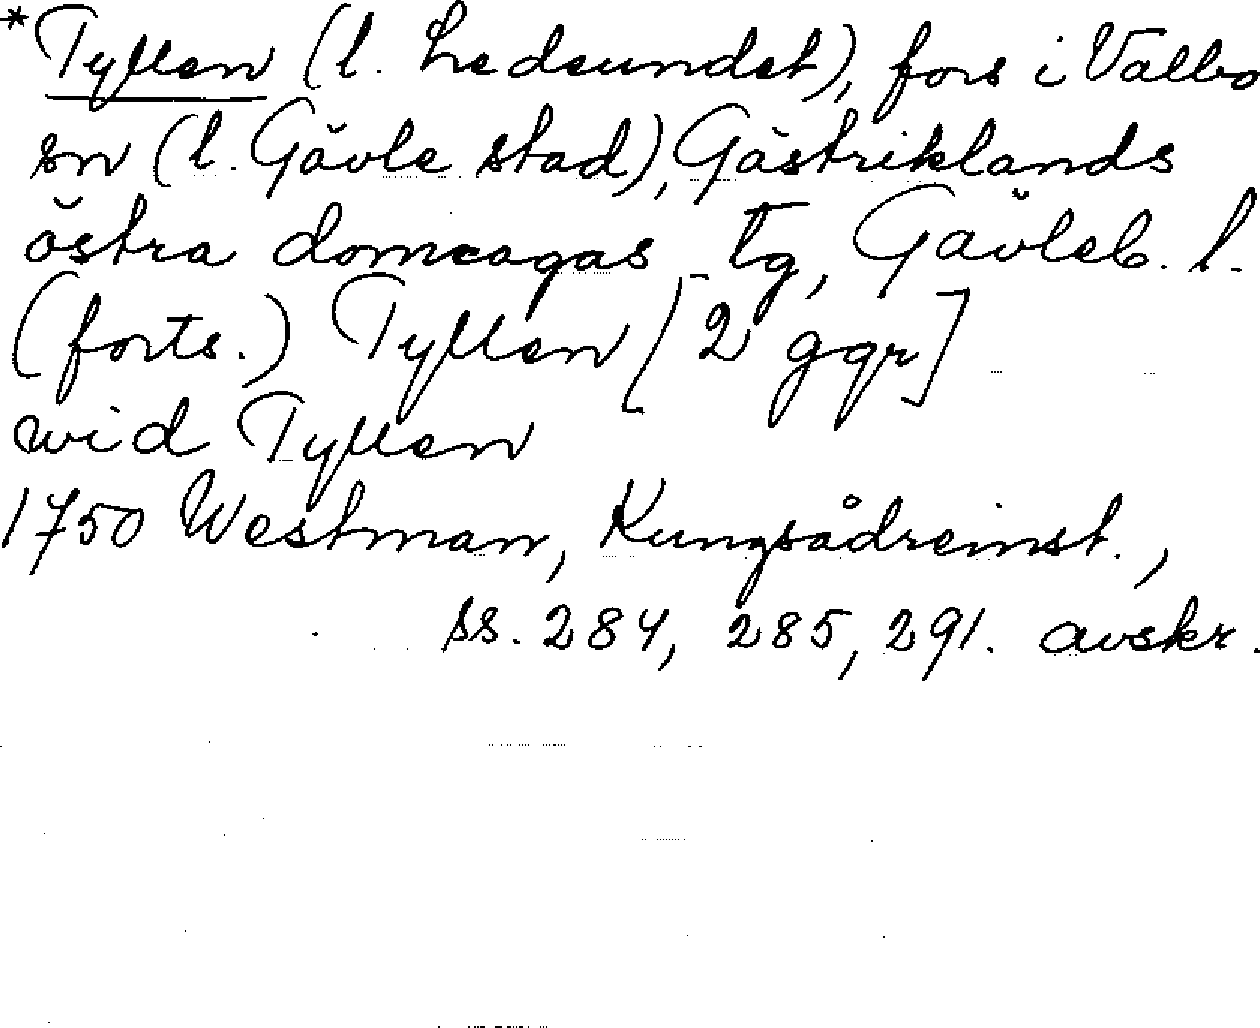 *Tyllen (l. Hedsundet), fors i Valbo
sn (l. Gävle stad), Gästriklands
östra domsagas tg, Gävleb. l.
(forts.) Tyllen [2 ggr]
wid Tyllen
1750 Westman, Kungsådreinst.,
ss. 284, 285, 291. avskr.